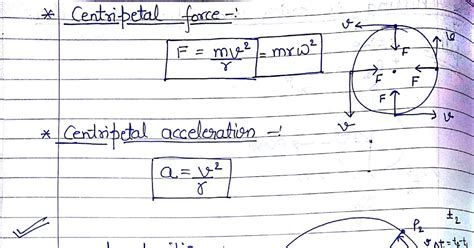 * Centripetal force -:
F = mv²/r = mrω²
v
F
v
F
F
F
v
v
* Centripetal acceleration -:
a = v²/r
t₂
P₂
v